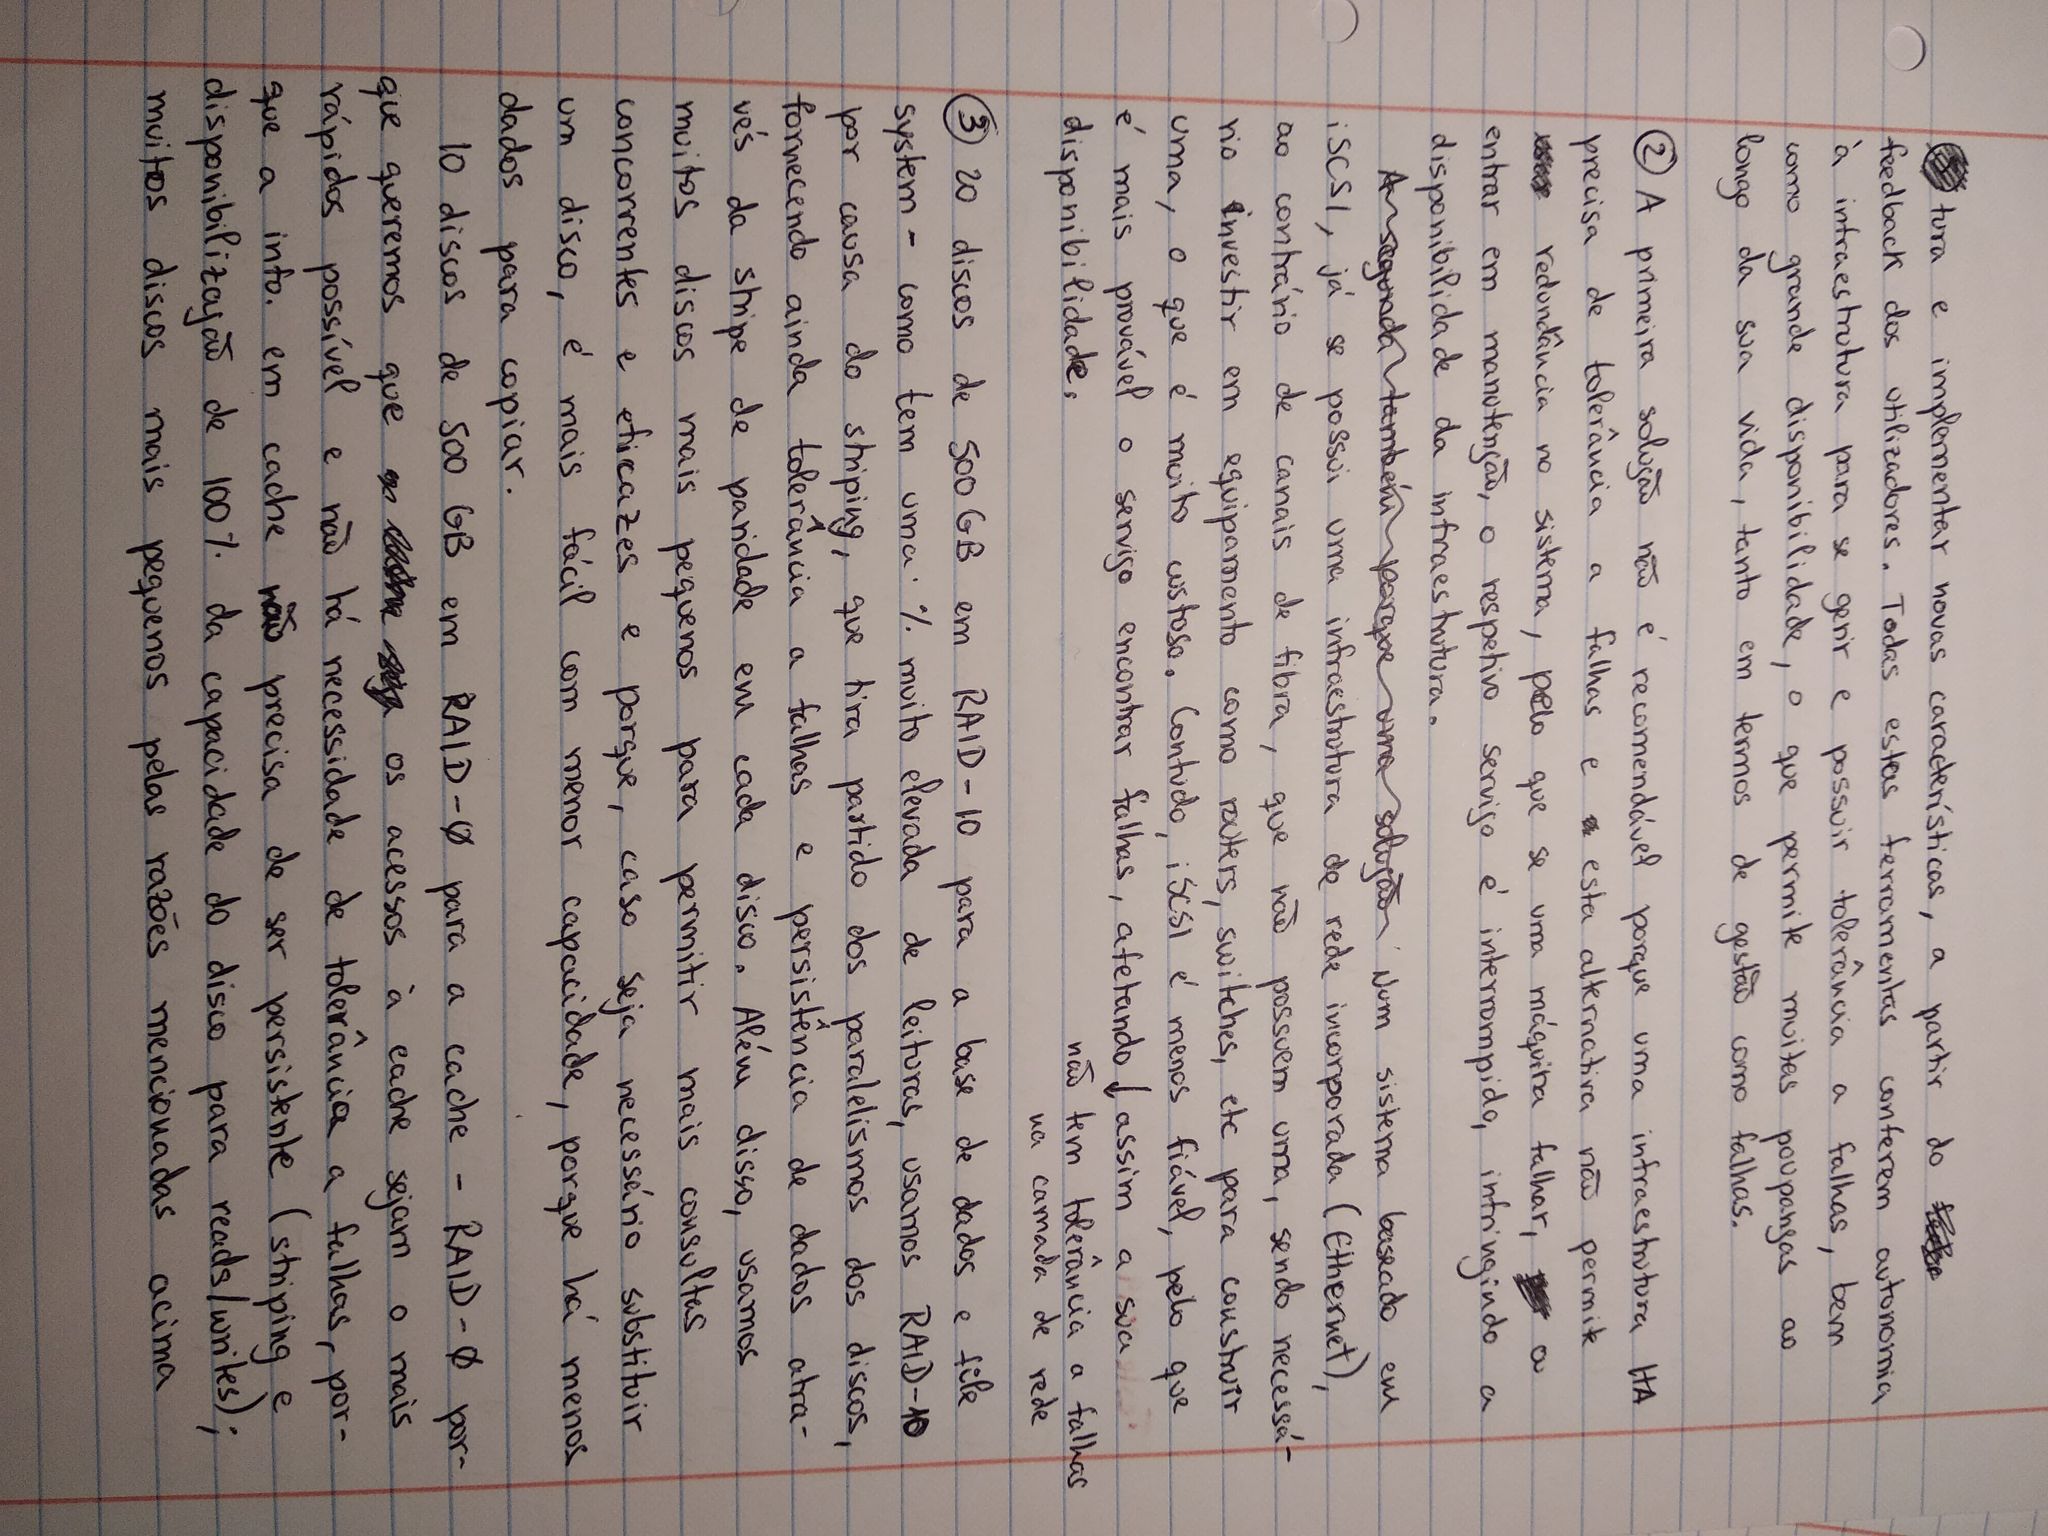 tura e implementar novas características, a partir do
feedback dos utilizadores. Todas estas ferramentas conferem autonomia
à infraestrutura para se gerir e possuir tolerância a falhas, bem
como grande disponibilidade, o que permite muitas poupanças ao
longo da sua vida, tanto em termos de gestão como falhas.
② A primeira solução não é recomendável porque uma infraestrutura HA
precisa de tolerância a falhas e esta alternativa não permite
redundância no sistema, pelo que se uma máquina falhar, ou
entrar em manutenção, o respetivo serviço é interrompido, infringindo a
disponibilidade da infraestrutura.
A segunda também porque uma solução Num sistema baseado em
iSCSI, já se possui uma infraestrutura de rede incorporada (Ethernet),
ao contrário de canais de fibra, que não possuem uma, sendo necessá-
rio investir em equipamento como routers, switches, etc para construir
uma, o que é muito custoso. Contudo, iSCSI é menos fiável, pelo que
é mais provável o serviço encontrar falhas, afetando ↓ assim a sua
disponibilidade.
não tem tolerância a falhas
na camada de rede
③ 20 discos de 500 GB em RAID-10 para a base de dados e file
system - como tem uma % muito elevada de leituras, usamos RAID-10
por causa do striping, que tira partido dos paralelismos dos discos,
fornecendo ainda tolerância a falhas e persistência de dados atra-
vés da stripe de paridade em cada disco. Além disso, usamos
muitos discos mais pequenos para permitir mais consultas
concorrentes e eficazes e porque, caso seja necessário substituir
um disco, é mais fácil com menor capacidade, porque há menos
dados para copiar.
10 discos de 500 GB em RAID-Ø para a cache - RAID-Ø por-
que queremos que os acessos à cache sejam o mais
rápidos possível e não há necessidade de tolerância a falhas, por-
que a info. em cache não precisa de ser persistente (striping e
disponibilização de 100% da capacidade do disco para reads/writes);
muitos discos mais pequenos pelas razões mencionadas acima